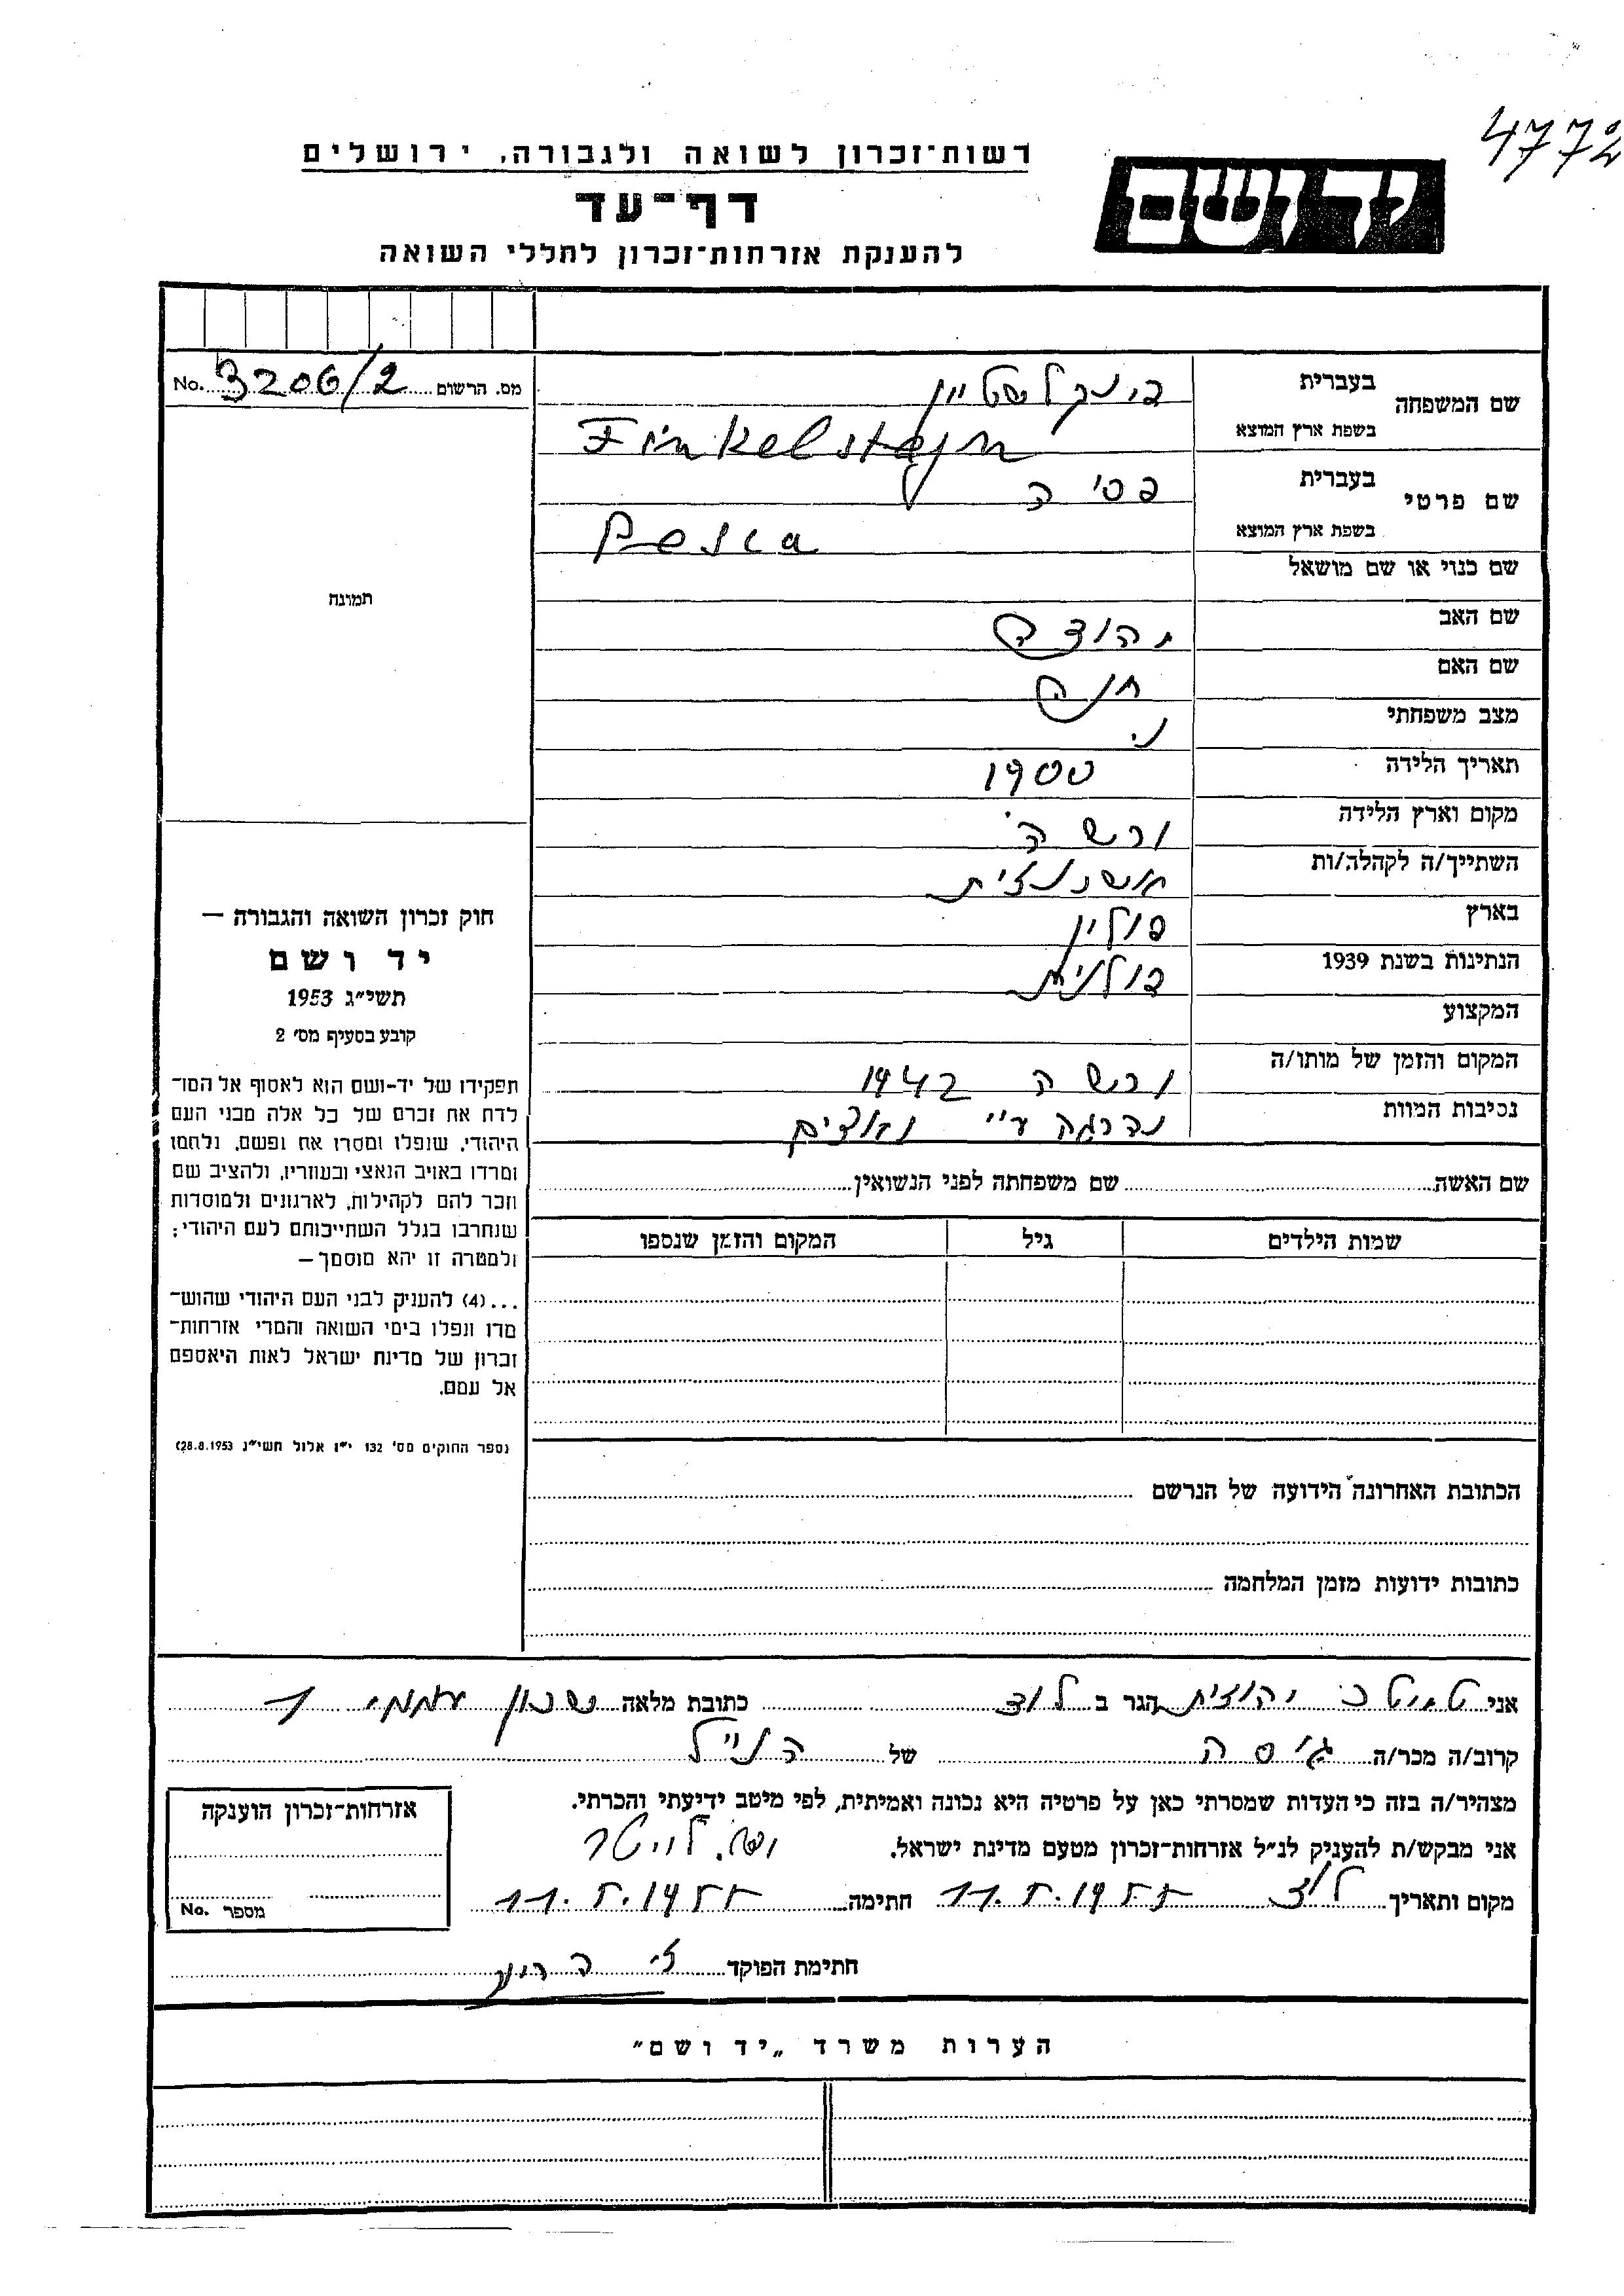 4772
רשות־זכרון לשואה ולגבורה, ירושלים
יד ושם
דף־עד
להענקת אזרחות־זכרון לחללי השואה
מס. הרשום 3206/2 No.
שם המשפחה
בעברית
פינקלשטיין
בשפת ארץ המוצא
Finkelstejn
שם פרטי
בעברית
פסיה
בשפת ארץ המוצא
Pesia
שם כנוי או שם מושאל
תמונה
שם האב יהודה
שם האם חנה
מצב משפחתי
תאריך הלידה 1900
מקום וארץ הלידה ורשה
השתייך/ה לקהלה/ות
בארץ פולין
הנתינות בשנת 1939 פולנית
המקצוע
המקום והזמן של מותו/ה ורשה 1942
נסיבות המוות נהרגה ע"י נאצים
חוק זכרון השואה והגבורה —
יד ושם
תשי״ג 1953
קובע בסעיף מס׳ 2
תפקידו של יד-ושם הוא לאסוף אל המו־
לדת את זכרם של כל אלה מבני העם
היהודי, שנפלו ומסרו את נפשם, נלחמו
ומרדו באויב הנאצי ובעוזריו, ולהציב שם
וזכר להם לקהילות, לארגונים ולמוסדות
שנחרבו בגלל השתייכותם לעם היהודי;
ולמטרה זו יהא מוסמך —
...(4) להעניק לבני העם היהודי שהוש־
מדו ונפלו בימי השואה והמרי אזרחות־
זכרון של מדינת ישראל לאות היאספם
אל עמם.
(ספר החוקים מס׳ 132 י״ז אלול תשי״ג 28.8.1953)
שם האשה שם משפחתה לפני הנשואין
שמות הילדים גיל המקום והזמן שנספו
הכתובת האחרונה הידועה של הנרשם
כתובות ידועות מזמן המלחמה
אני יהודית הגר ב לוד כתובת מלאה שכון עממי 1
קרוב/ה מכר/ה גיסה של הנ"ל
מצהיר/ה בזה כי העדות שמסרתי כאן על פרטיה היא נכונה ואמיתית, לפי מיטב ידיעתי והכרתי.
אני מבקש/ת להעניק לנ״ל אזרחות־זכרון מטעם מדינת ישראל.
מקום ותאריך לוד 11.5.1955 חתימה 11.5.1955
חתימת הפוקד
אזרחות־זכרון הוענקה
מספר No.
הערות משרד „יד ושם״